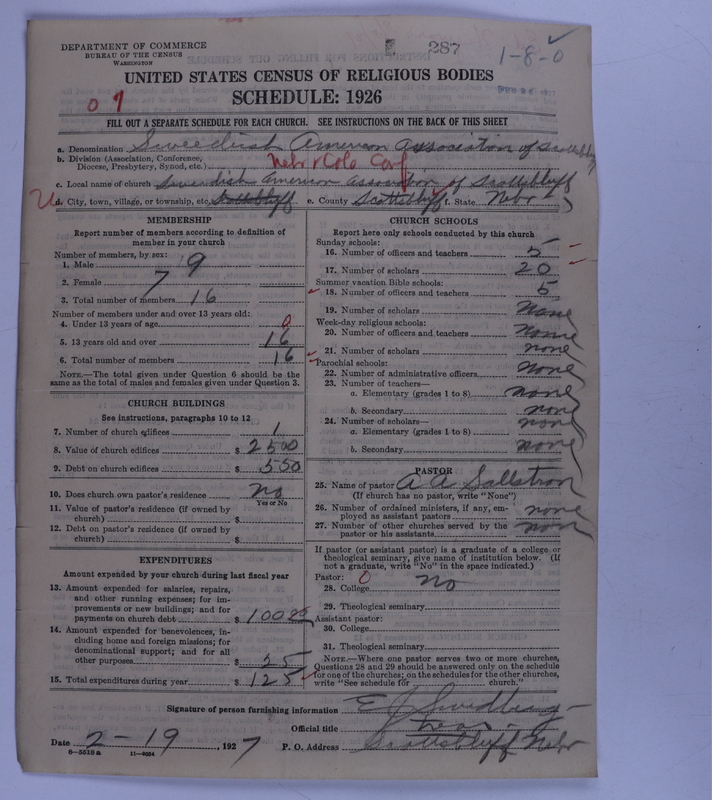 DEPARTMENT OF COMMERCE
BUREAU OF THE CENSUS
WASHINGTON
287
1-8-0
UNITED STATES CENSUS OF RELIGIOUS BODIES
SCHEDULE: 1926
0 9
FILL OUT A SEPARATE SCHEDULE FOR EACH CHURCH. SEE INSTRUCTIONS ON THE BACK OF THIS SHEET
a. Denomination Swedish American Association of Scottsbluff
b. Division (Association, Conference, Diocese, Presbytery, Synod, etc.) Nebr & Colo Conf
c. Local name of church Swendish American Association of Scottsbluff
d. City, town, village, or township, etc. Scottsbluff e. County Scottsbluff f. State Nebr
MEMBERSHIP
Report number of members according to definition of
member in your church
Number of members, by sex:
1. Male 9
2. Female 7
3. Total number of members 16
Number of members under and over 13 years old:
4. Under 13 years of age 0
5. 13 years old and over 16
6. Total number of members 16
NOTE.—The total given under Question 6 should be
same as the total of males and females given under Question 3.
CHURCH BUILDINGS
See instructions, paragraphs 10 to 12
7. Number of church edifices 1
8. Value of church edifices $ 2500
9. Debt on church edifices $ 550
10. Does church own pastor's residence no
Yes or No
11. Value of pastor's residence (if owned by
church) $
12. Debt on pastor's residence (if owned by
church) $
EXPENDITURES
Amount expended by your church during last fiscal year
13. Amount expended for salaries, repairs,
and other running expenses; for im-
provements or new buildings; and for
payments on church debt $ 100
14. Amount expended for benevolences, in-
cluding home and foreign missions; for
denominational support; and for all
other purposes $ 25
15. Total expenditures during year $ 125
CHURCH SCHOOLS
Report here only schools conducted by this church
Sunday schools:
16. Number of officers and teachers 5
17. Number of scholars 20
Summer vacation Bible schools:
18. Number of officers and teachers 5
19. Number of scholars none
Week-day religious schools:
20. Number of officers and teachers none
21. Number of scholars none
Parochial schools:
22. Number of administrative officers none
23. Number of teachers—
a. Elementary (grades 1 to 8) none
b. Secondary none
24. Number of scholars—
a. Elementary (grades 1 to 8) none
b. Secondary none
PASTOR
25. Name of pastor A A Sallstrom
(If church has no pastor, write "None")
26. Number of ordained ministers, if any, em-
ployed as assistant pastors none
27. Number of other churches served by the
pastor or his assistants none
If pastor (or assistant pastor) is a graduate of a college or
theological seminary, give name of institution below. (If
not a graduate, write "No" in the space indicated.)
Pastor: 0
28. College no
29. Theological seminary
Assistant pastor:
30. College
31. Theological seminary
NOTE.—Where one pastor serves two or more churches,
Questions 28 and 29 should be answered only on the schedule
for one of the churches; on the schedules for the other churches,
write "See schedule for church."
Signature of person furnishing information E J Swedberg
Official title Treas
Date 2-19, 1927 P. O. Address Scottsbluff Nebr
8-5518a 11-9034